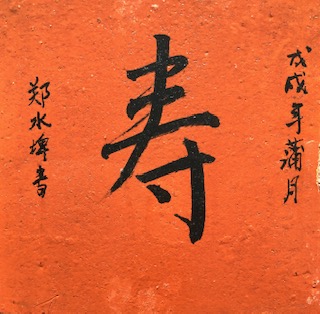 戊戌年蒲月
寿
郑水埤書